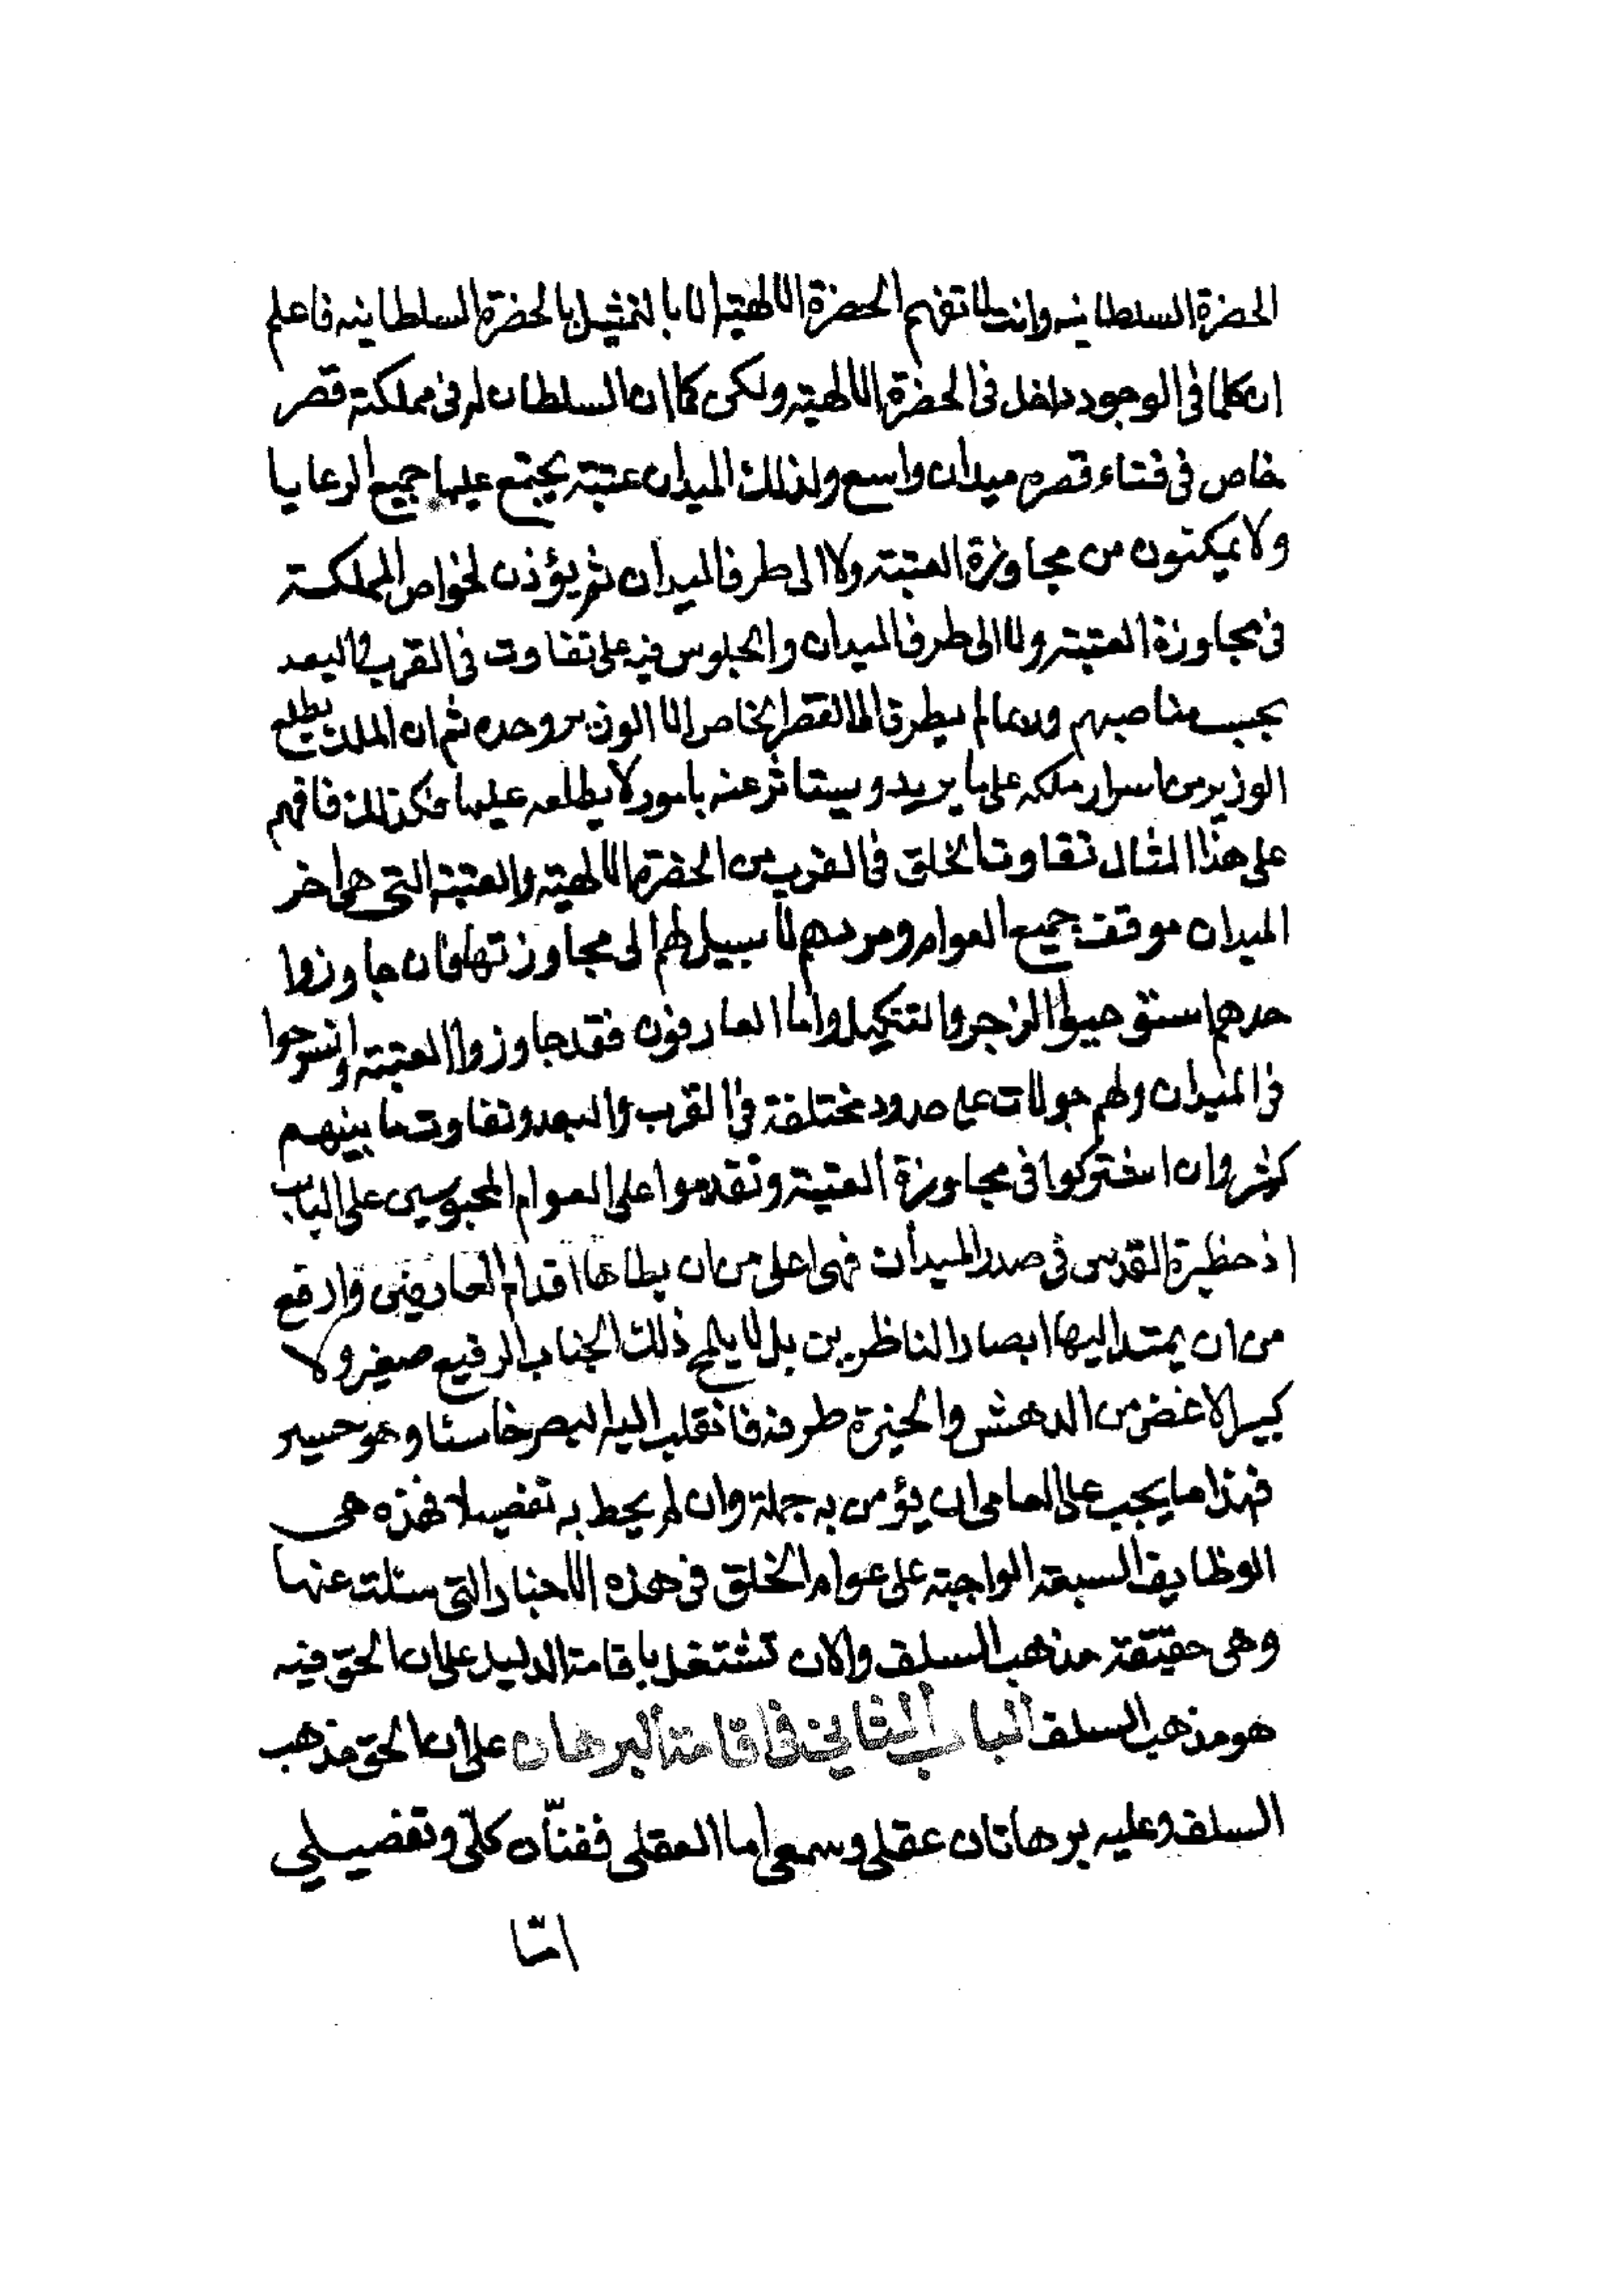 الحضرة السلطانيه وانت لا تفهم الحضرة الالهية الا بالتمثيل بالحضرة السلطانيه فاعلم
ان كلما في الوجود داخل في الحضرة الالهية ولكن كما ان السلطان له في مملكته قصر
خاص في فناء قصره ميدان واسع ولذلك الميدان عتبة يجتمع عليها جميع الرعايا
ولا يمكنون من مجاوزة العتبة ولا الى طرف الميدان ثم يؤذن لخواص المملكة
في مجاوزة العتبة ولا الى طرف الميدان والجلوس فيه على تفاوت في القرب والبعد
بحسب مناصبهم وربما لم يطرق الى القصر الخاص الا الوزير وحده ثم ان الملك يطلع
الوزير من اسرار ملكه على ما يريد ويستاثر عنه بامور لا يطلعه عليها فكذلك فافهم
على هذا المثال تفاوت الخلق في القرب من الحضرة الالهية والعتبة التي هي اخر
الميدان موقف جميع العوام ومردهم لا سبيل لهم الى مجاوزتها فان جاوزوا
حدهم استوجبوا الزجر والتنكيل واما العارفون فقد جاوزوا العتبة وانسرحوا
في الميدان ولهم جولات على حدود مختلفة في القرب والبعد وتفاوت ما بينهم
كثير وان اشتركوا في مجاوزة العتبة وتقدموا على العوام المحبوسين على الباب
اذ حظيرة القدس في صدر الميدان فهى اعلى من ان يطاها اقدام العارفين وارفع
من ان يمتد اليها ابصار الناظرين بل لا يلمح ذلك الجناب الرفيع صغير ولا
كبير الا غض من الدهش والحيرة طرفه فانقلب اليه البصر خاسئا وهو حسير
فهذا ما يجب على العامى ان يؤمن به جملة وان لم يحط به تفصيلا فهذه هى
الوظايف السبعة الواجبة على عوام الخلق في هذه الاخبار التي سئلت عنها
وهى حقيقة مذهب السلف والان تشتغل باقامة الدليل على ان الحق فيه
هو مذهب السلف الباب الثاني في اقامة البرهان على ان الحق مذهب
السلف وعليه برهانان عقلى وسمعى اما العقلى ففنّان كلّى وتفصيلي
امّا